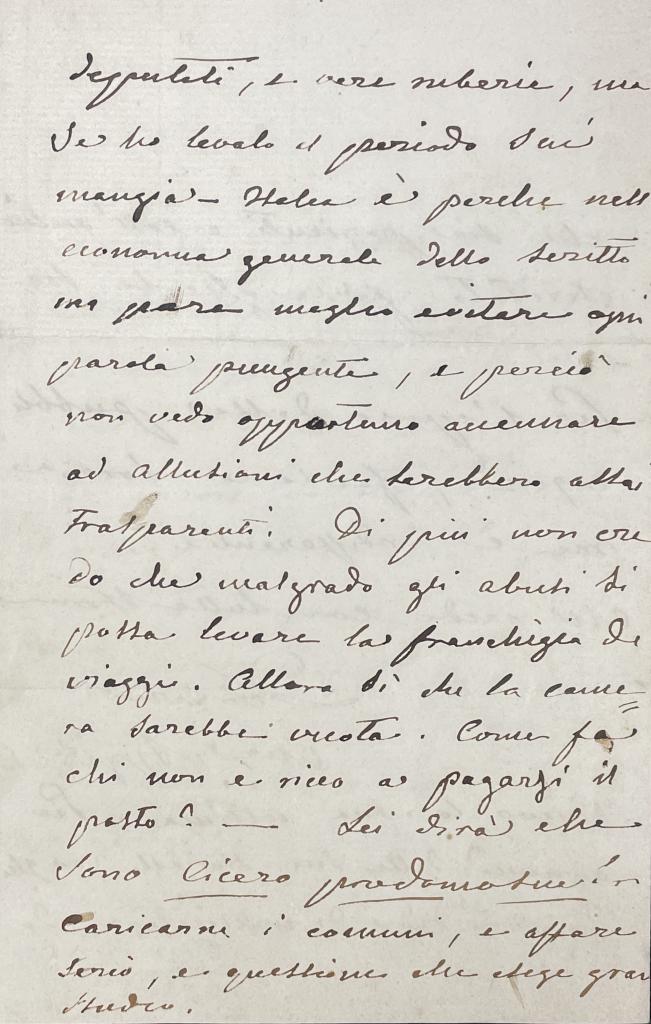 deputati, e vere ruberie, ma
se ho levato il periodo sui
mangia-Italia è perche nell
economia generale dello scritto
mi pare meglio evitare ogni
parola pungente, e perciò
non vedo opportuno accennare
ad allusioni che sarebbero assai
trasparenti. Di più non cre
do che malgrado gli abusi si
possa levare la franchigia di
viaggi. Allora sì che la came=
ra sarebbe vuota. Come fa
chi non è ricco a pagarsi il
posto? — Lei dirà che
sono Cicero prodomosua! in
caricarne i comuni, e affare
serio, e questione che esige gran
studio.